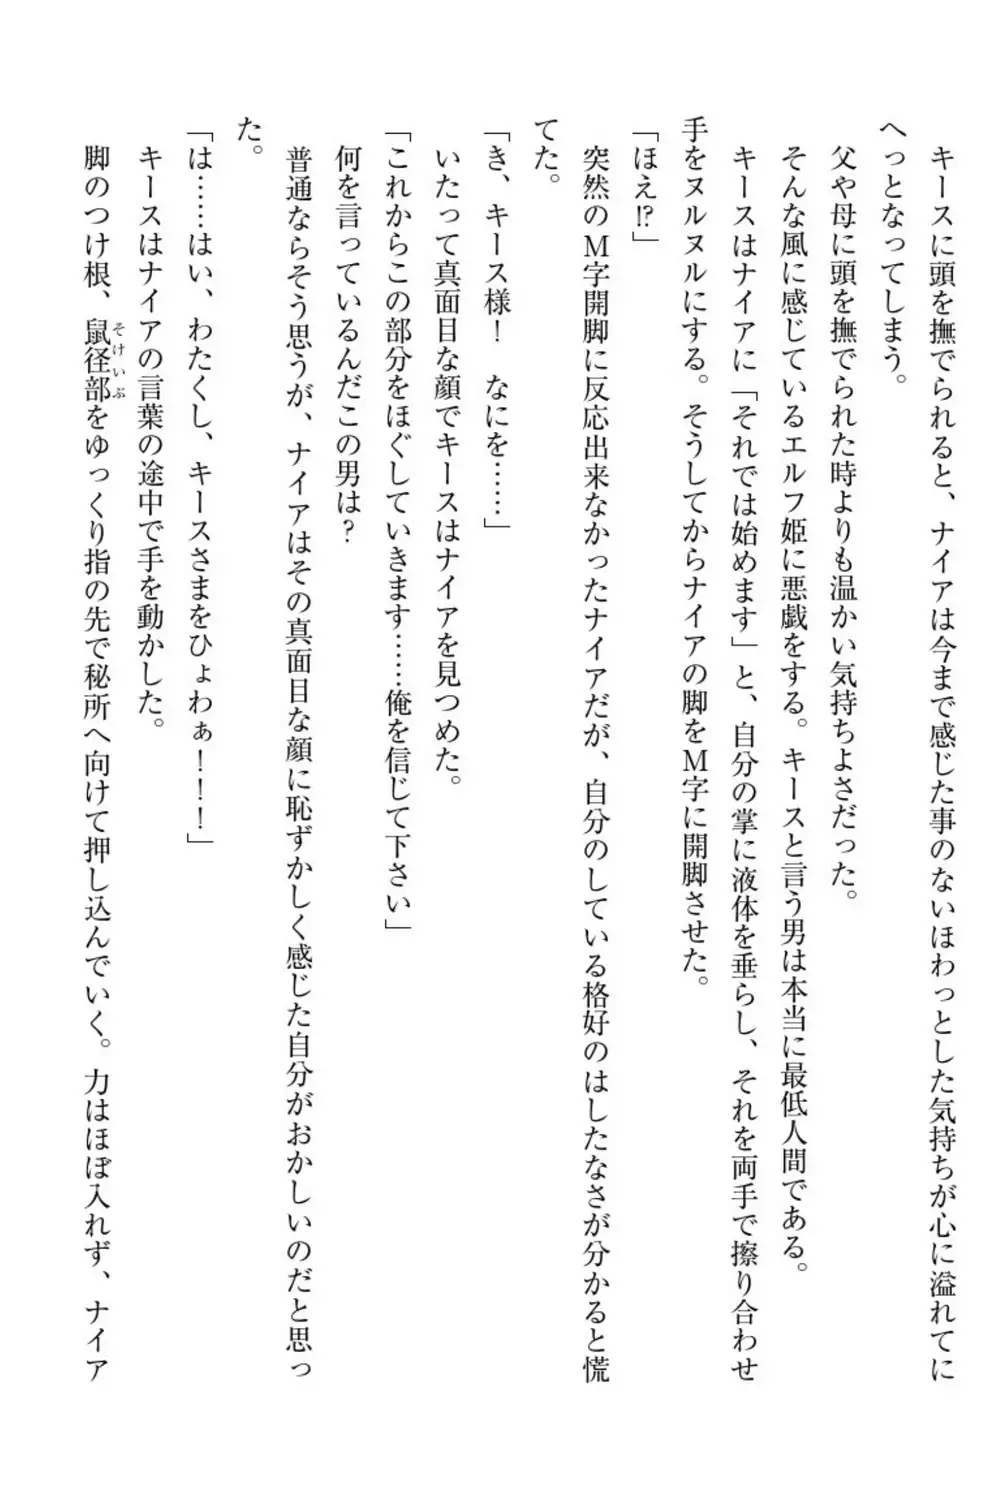 キースに頭を撫でられると、ナイアは今まで感じた事のないほわっとした気持ちが心に溢れてに
へっとなってしまう。
父や母に頭を撫でられた時よりも温かい気持ちよさだった。
そんな風に感じているエルフ姫に悪戯をする。キースと言う男は本当に最低人間である。
キースはナイアに「それでは始めます」と、自分の掌に液体を垂らし、それを両手で擦り合わせ
手をヌルヌルにする。そうしてからナイアの脚をM字に開脚させた。
「ほえ!?」
突然のM字開脚に反応出来なかったナイアだが、自分のしている格好のはしたなさが分かると慌
てた。
「き、キース様!　なにを……」
いたって真面目な顔でキースはナイアを見つめた。
「これからこの部分をほぐしていきます……俺を信じて下さい」
何を言っているんだこの男は?
普通ならそう思うが、ナイアはその真面目な顔に恥ずかしく感じた自分がおかしいのだと思っ
た。
「は……はい、わたくし、キースさまをひょわぁ!!!」
キースはナイアの言葉の途中で手を動かした。
脚のつけ根、鼠径部そけいぶをゆっくり指の先で秘所へ向けて押し込んでいく。力はほぼ入れず、ナイア